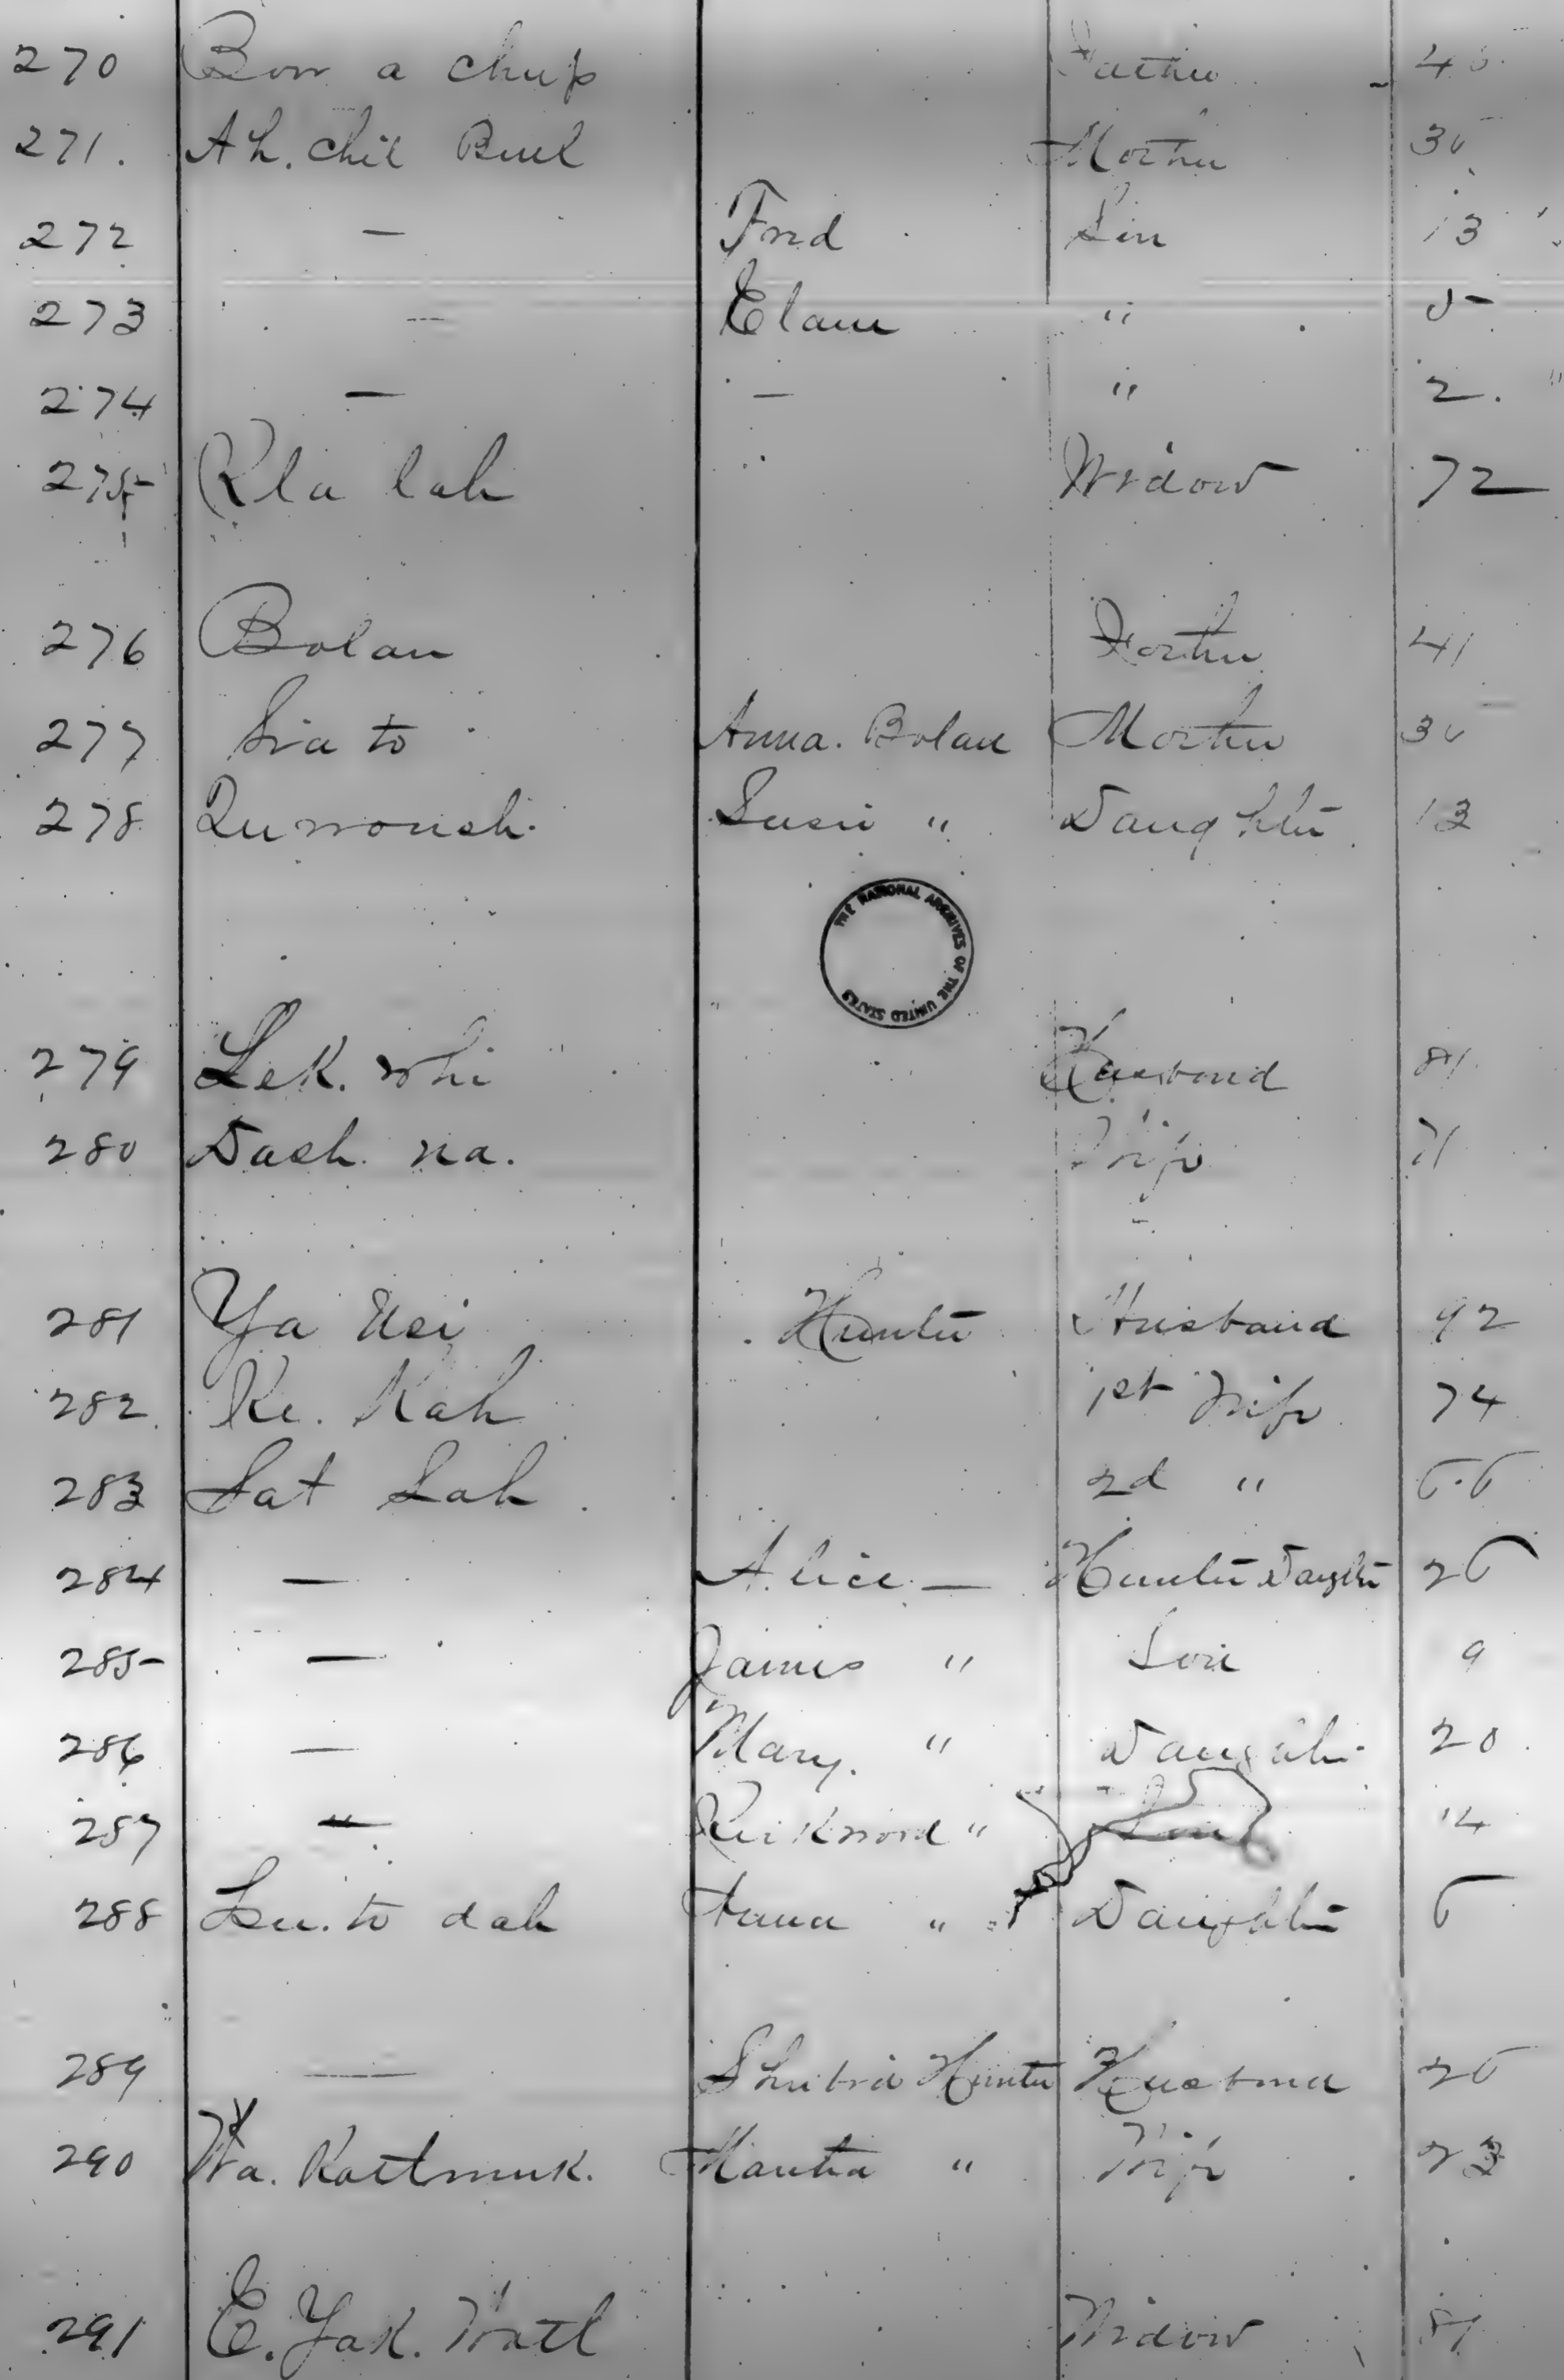 270 Bow a chup Father 40
271. Ah. chil Buel Mother 30
272 — Fred Son 13
273 — Elam " 5
274 — — " 2.
275 Kla lah Widow 72
276 Bolan Father 41
277 Sia to Anna. Bolan Mother 30
278 Susie " Daughter 13
THE NATIONAL ARCHIVES OF THE UNITED STATES
279 Lek. whi Husband 81
280 Dash. na. Wife 71
281 Ya Hunter Husband 92
282 Ke. Kah 1st Wife 74
283 Sat Lah 2d " 55
284 — Alice — Hunter Daughter 25
285 — James " Son 9
286 — Mary. " Daughter 20
287 — " 14
288 to dah Anna " Daughter 5
289 — Hunter Husband 25
290 Wa. Kattmuk. Martha " Wife 23
291 E. Yak. Watl Widow 81